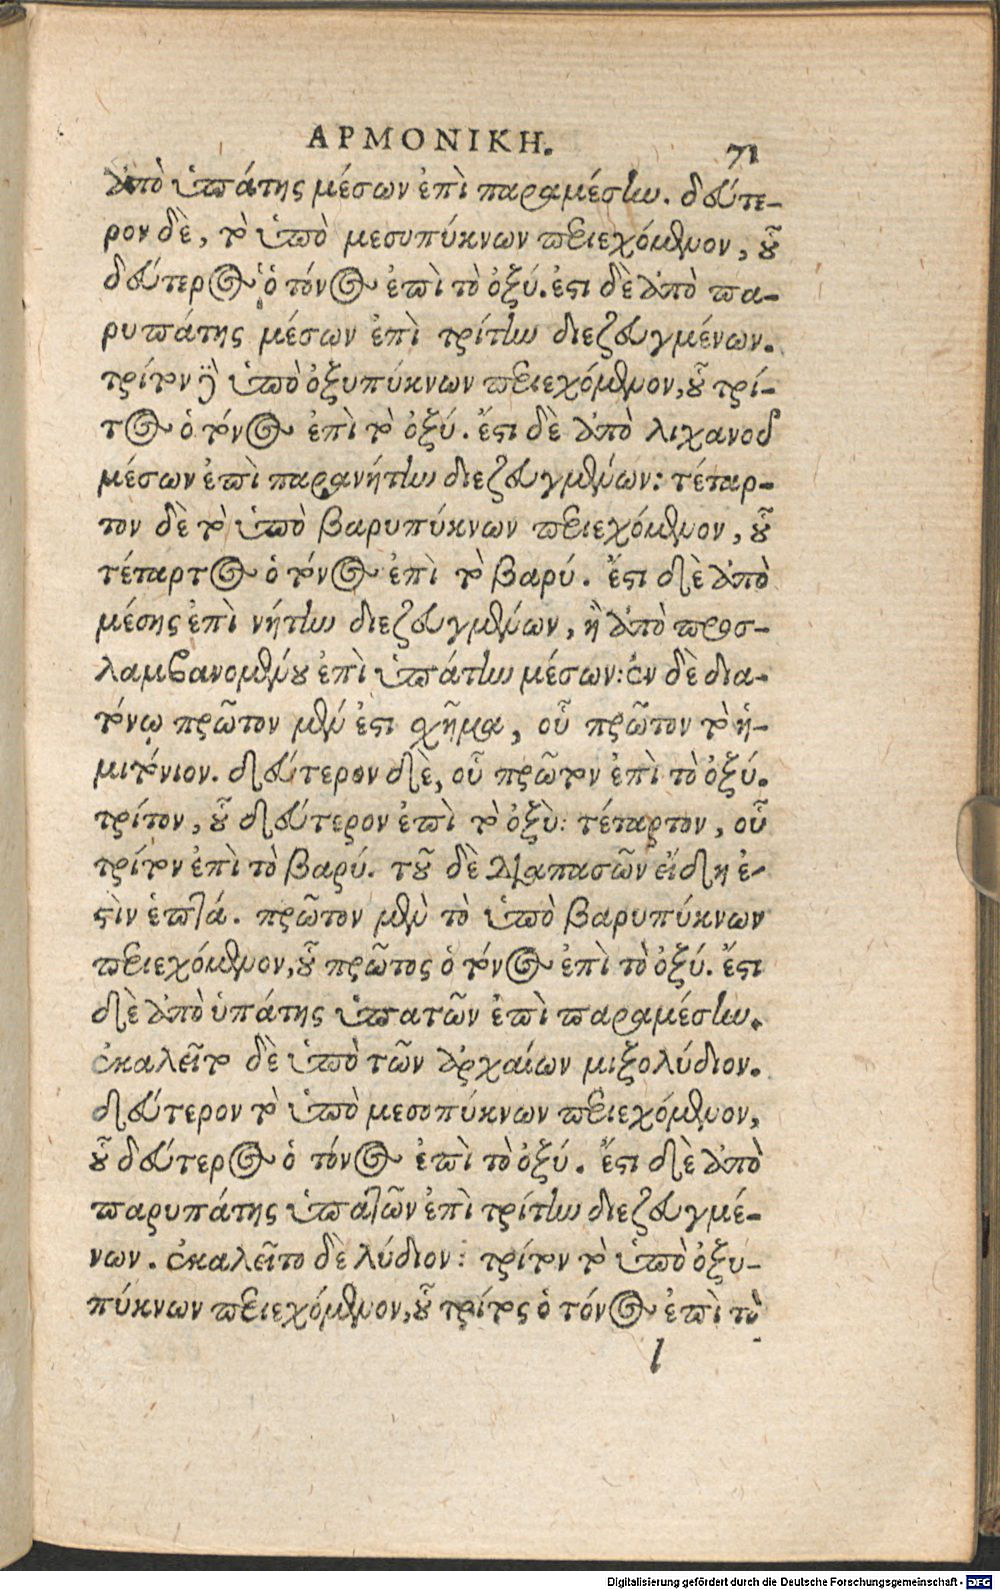 ΑΡΜΟΝΙΚΗ.
71
ἀπὸ ὑπάτης μέσων ἐπὶ παραμέσην. δεύτε-
ρον δὲ, τὸ ὑπὸ μεσυπύκνων περιεχόμενον, οὗ
δεύτερος ὁ τόνος ἐπὶ τὸ ὀξύ. ἔστι δὲ ἀπὸ πα-
ρυπάτης μέσων ἐπὶ τρίτην διεζευγμένων.
τρίτον δὲ ὑπὸ ὀξυπύκνων περιεχόμενον, οὗ τρί-
τος ὁ τόνος ἐπὶ τὸ ὀξύ. ἔστι δὲ ἀπὸ λιχανοῦ
μέσων ἐπὶ παρανήτην διεζευγμένων: τέταρ-
τον δὲ τὸ ὑπὸ βαρυπύκνων περιεχόμενον, οὗ
τέταρτος ὁ τόνος ἐπὶ τὸ βαρύ. ἔστι δὲ ἀπὸ
μέσης ἐπὶ νήτην διεζευγμένων, ἢ ἀπὸ προσ-
λαμβανομένου ἐπὶ ὑπάτην μέσων: ἐν δὲ δια-
τόνῳ πρῶτον μέν ἐστι σχῆμα, οὗ πρῶτον τὸ ἡ-
μιτόνιον. δεύτερον δὲ, οὗ πρῶτον ἐπὶ τὸ ὀξύ.
τρίτον, οὗ δεύτερον ἐπὶ τὸ ὀξὺ: τέταρτον, οὗ
τρίτον ἐπὶ τὸ βαρύ. τοῦ δὲ διαπασῶν εἴδη ἐ-
στὶν ἑπτά. πρῶτον μὲν τὸ ὑπὸ βαρυπύκνων
περιεχόμενον, οὗ πρῶτος ὁ τόνος ἐπὶ τὸ ὀξύ. ἔστι
δὲ ἀπὸ ὑπάτης ὑπατῶν ἐπὶ παραμέσην.
ἐκαλεῖτο δὲ ὑπὸ τῶν ἀρχαίων μιξολύδιον.
δεύτερον τὸ ὑπὸ μεσοπύκνων περιεχόμενον,
οὗ δεύτερος ὁ τόνος ἐπὶ τὸ ὀξύ. ἔστι δὲ ἀπὸ
παρυπάτης ὑπατῶν ἐπὶ τρίτην διεζευγμέ-
νων. ἐκαλεῖτο δὲ λύδιον: τρίτον τὸ ὑπὸ ὀξυ-
πύκνων περιεχόμενον, οὗ τρίτος ὁ τόνος ἐπὶ τὸ
l
Digitalisierung gefördert durch die Deutsche Forschungsgemeinschaft - DFG